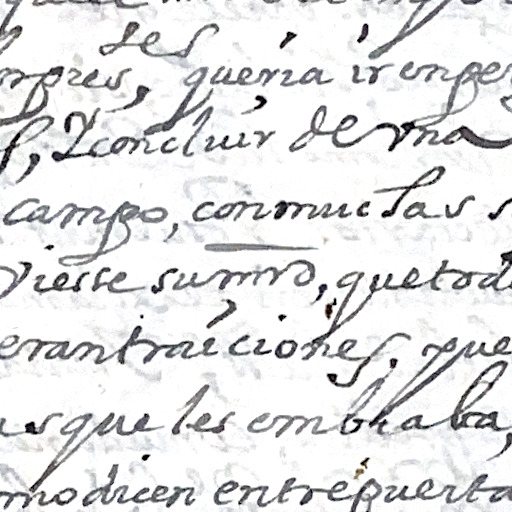 les
mpres, queria ir en per
s, Y concluir de vna
campo, con muchas s
viesse su mrd, que tod
eran traiciones, pue
as que les embiaba,
mo dicen entre puerta